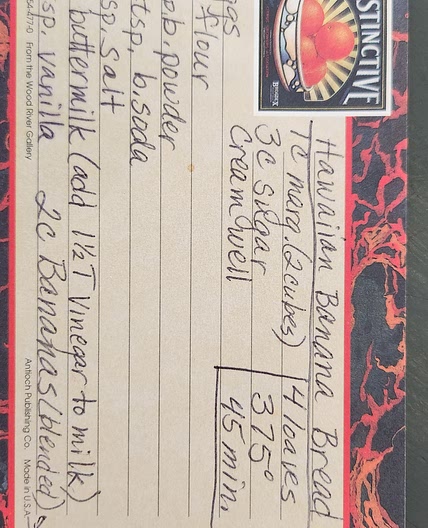 STINCTIVE
Hawaiian Banana Bread
1c marg. (2 cubes) 4 loaves
3c sugar 375°
Cream well 45 min.
gs
flour
b. powder
tsp. b. soda
sp. salt
buttermilk (add 1½ T vinegar to milk)
sp. vanilla 2c Bananas (blended)
From the Wood River Gallery
Antioch Publishing Co. Made in U.S.A.